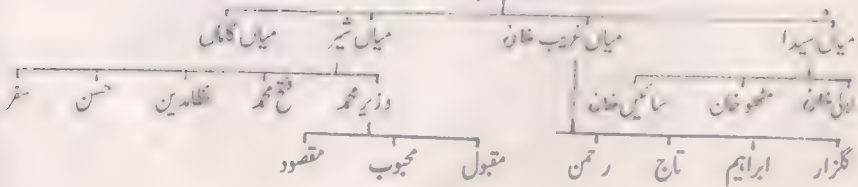 میاں سیدا میاں غریب خانہ میاں شیر میاں کاماں
ولی خانہ مٹھو خان سائیں خانہ وزیر محمد فتح محمد نظامدین حسن سفر
گلزار ابراہیم تاج رحمن مقبول محبوب مقصود